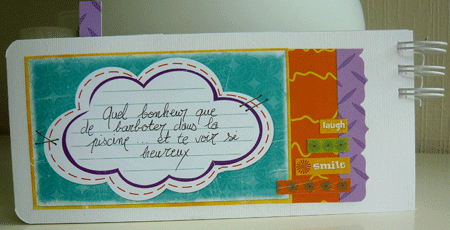 Quel bonheur que
de barboter dans la
piscine... et te voir si
heureux
laugh
smile